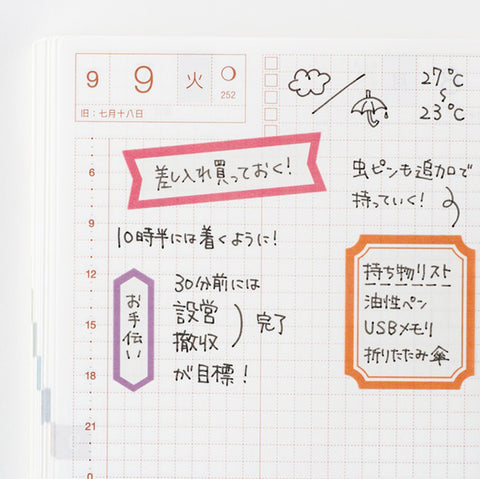 9 9 火
252
旧：七月十八日
27℃
〜
23℃
差し入れ買っておく！
虫ピンも追加で
持っていく！
10時半には着くように！
お手伝い
30分前には
設営
撤収
完了
が目標！
持ち物リスト
油性ペン
USBメモリ
折りたたみ傘
6
9
12
15
18
21
0